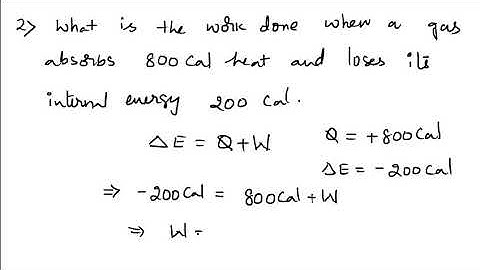 2) What is the work done when a gas
absorbs 800 Cal heat and loses its
internal energy 200 Cal.
ΔE = Q + W
Q = +800 Cal
ΔE = -200 Cal
⇒ -200 Cal = 800 Cal + W
⇒ W =